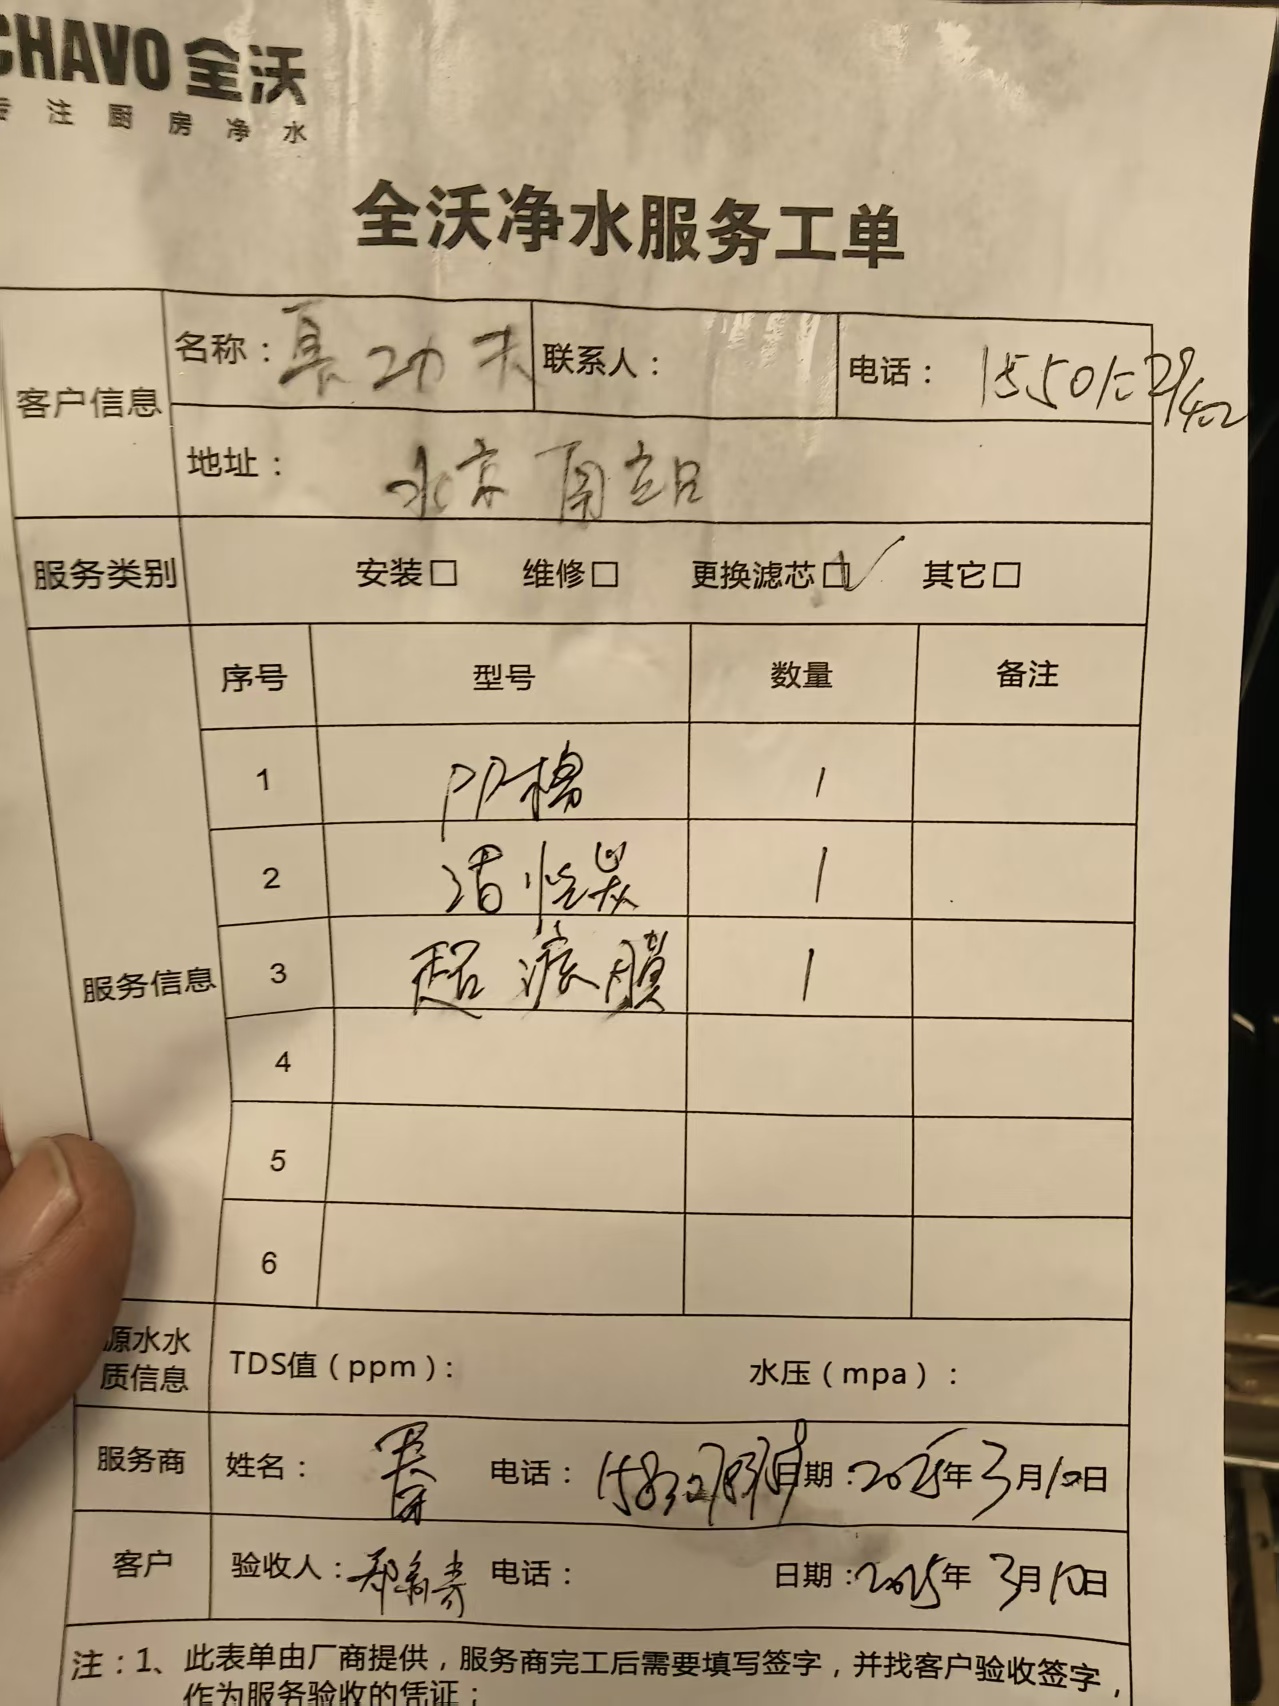 CHAVO 全沃
专注厨房净水
全沃净水服务工单
客户信息 名称：真功夫 联系人： 电话：
地址：北京南站
服务类别 安装□ 维修□ 更换滤芯□✓ 其它□
服务信息 序号 型号 数量 备注
1 PP棉 1
2 活性炭 1
3 超滤膜 1
4
5
6
源水水质信息 TDS值（ppm）： 水压（mpa）：
服务商 姓名： 电话： 日期：2025年3月10日
客户 验收人： 电话： 日期：2025年3月10日
注：1、此表单由厂商提供，服务商完工后需要填写签字，并找客户验收签字，
作为服务验收的凭证；